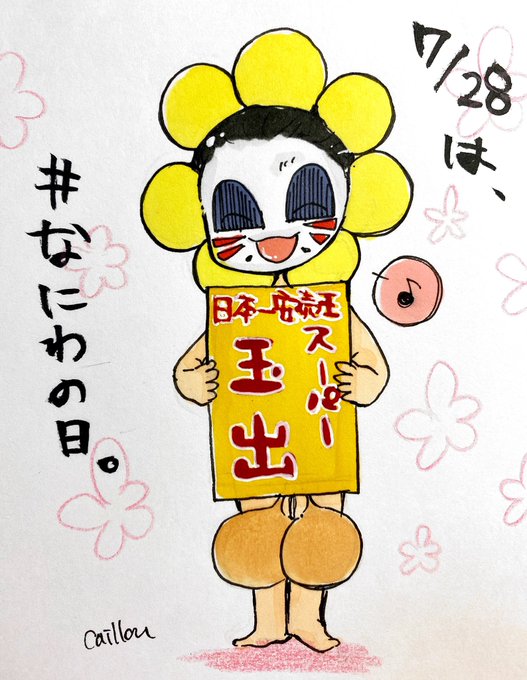 7/28は、
#なにわの日。
日本一安売王
スーパー
玉出
♪
caillou